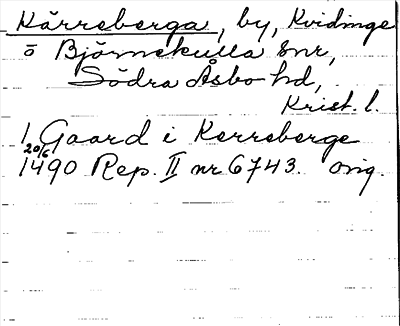 Kärreberga, by, Kvidinge
o Björnekulla snr,
Södra Åsbo hd,
Krist. l.
1 Gaard i Kerreberge
20/6
1490 Rep. II nr 6743. orig.